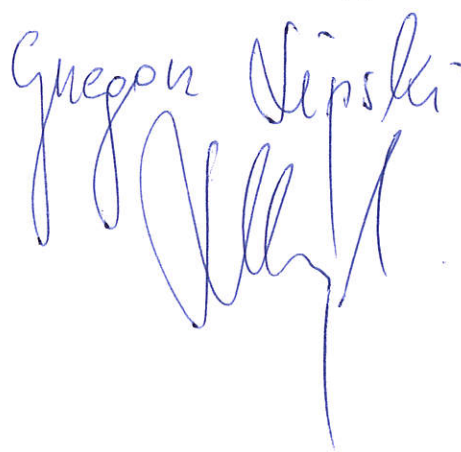 Grzegorz Lipski